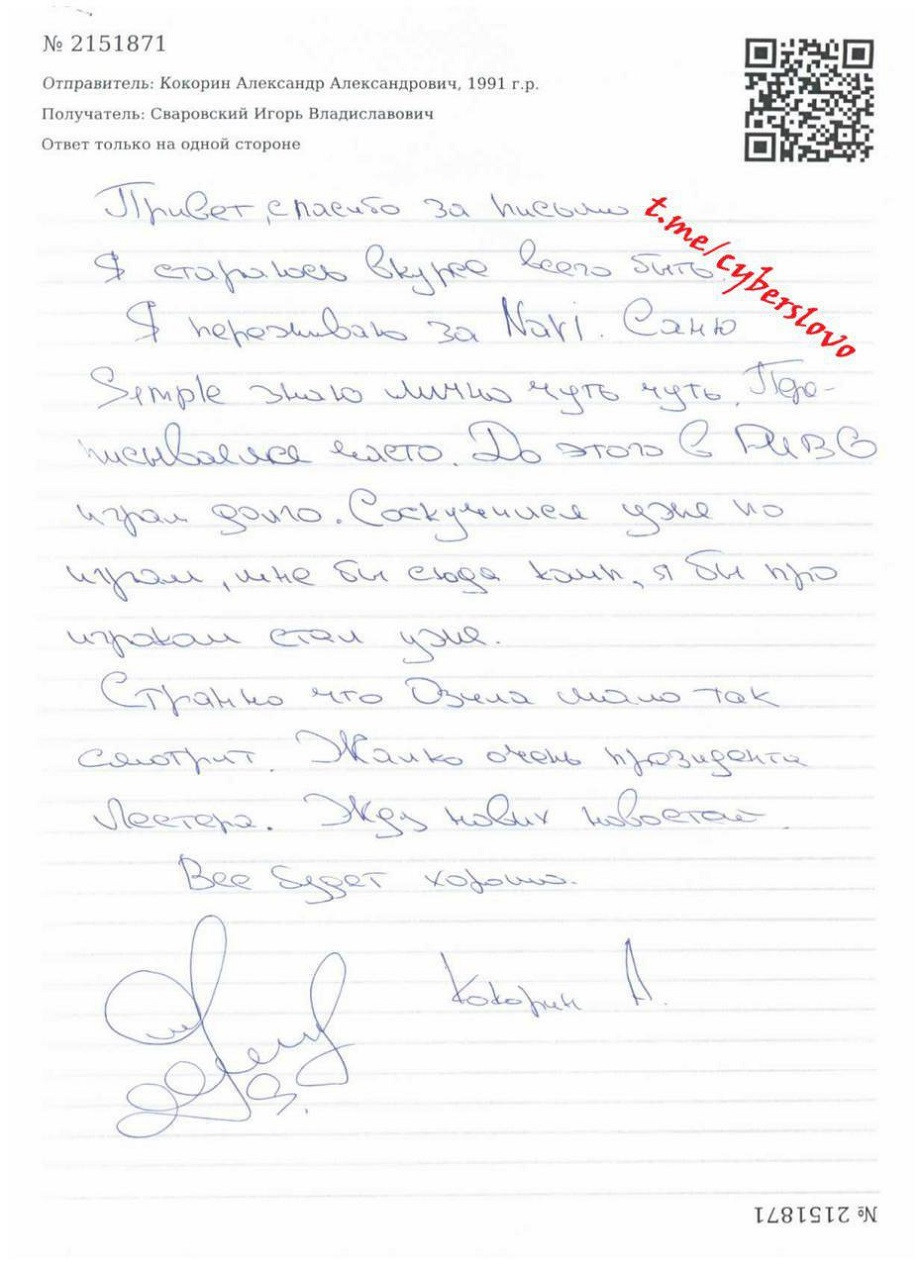 № 2151871
Отправитель: Кокорин Александр Александрович, 1991 г.р.
Получатель: Сваровский Игорь Владиславович
Ответ только на одной стороне
Привет, спасибо за письмо
t.me/cyberslovo
Я стараюсь вкурсе всего быть.
Я переживаю за Navi. Саню
Simple знаю лично чуть чуть. Пере-
писывался часто. До этого в PUBG
играл долго. Соскучился уже по
играм, мне бы сюда комп, я бы про
игроком стал уже.
Странно что Озила мало так
смотрит. Жалко очень президента
Лестера. Жду новых новостей.
Все будет хорошо.
Кокорин А.
9.
№ 2151871